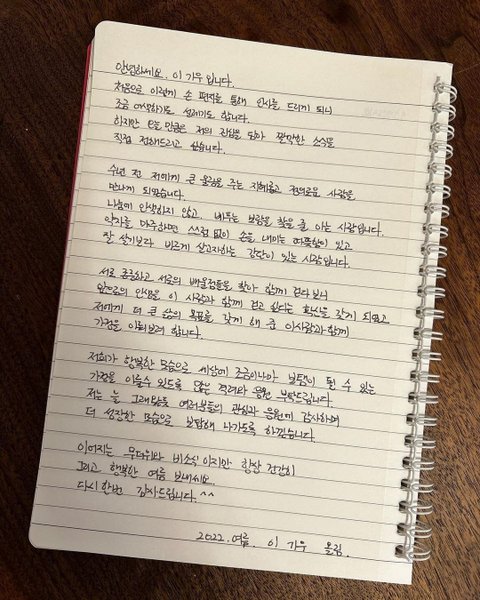 안녕하세요. 이 가우 입니다.
처음으로 이렇게 손 편지를 통해 인사를 드리게 되니
조금 어색하기도 설레기도 합니다.
하지만 오늘 만큼은 저의 진심을 담아 깜짝한 소식을
직접 전해드리고 싶습니다.
수년 전 저에게 큰 울림을 주는 지혜롭고 정의로운 사람을
만나게 되었습니다.
나눔에 인색하지 않고, 베푸는 보람을 찾을 줄 아는 사람입니다.
약자를 마주하면 스스럼 없이 손을 내미는 따뜻함이 있고
잘 살기보다 바르게 살고자하는 강단이 있는 사람입니다.
서로 존중하고 서로의 배울점들을 찾아 함께 걷다보니
앞으로의 인생을 이 사람과 함께 걷고 싶다는 확신을 갖게 되었고
저에게 더 큰 삶의 목표를 갖게 해 준 이사람과 함께
가정을 이뤄보려 합니다.
저희가 행복한 모습으로 세상에 조금이나마 보탬이 될 수 있는
가정을 이룰수 있도록 많은 격려와 응원 부탁드립니다.
저는 늘 그래왔듯 여러분들의 관심과 응원에 감사하며
더 성장한 모습으로 보답해 나가도록 하겠습니다.
이어지는 무더위와 비소식 이지만 항상 건강히
그리고 행복한 여름 보내세요.
다시 한번 감사드립니다.^^
2022. 여름. 이 가우 올림.